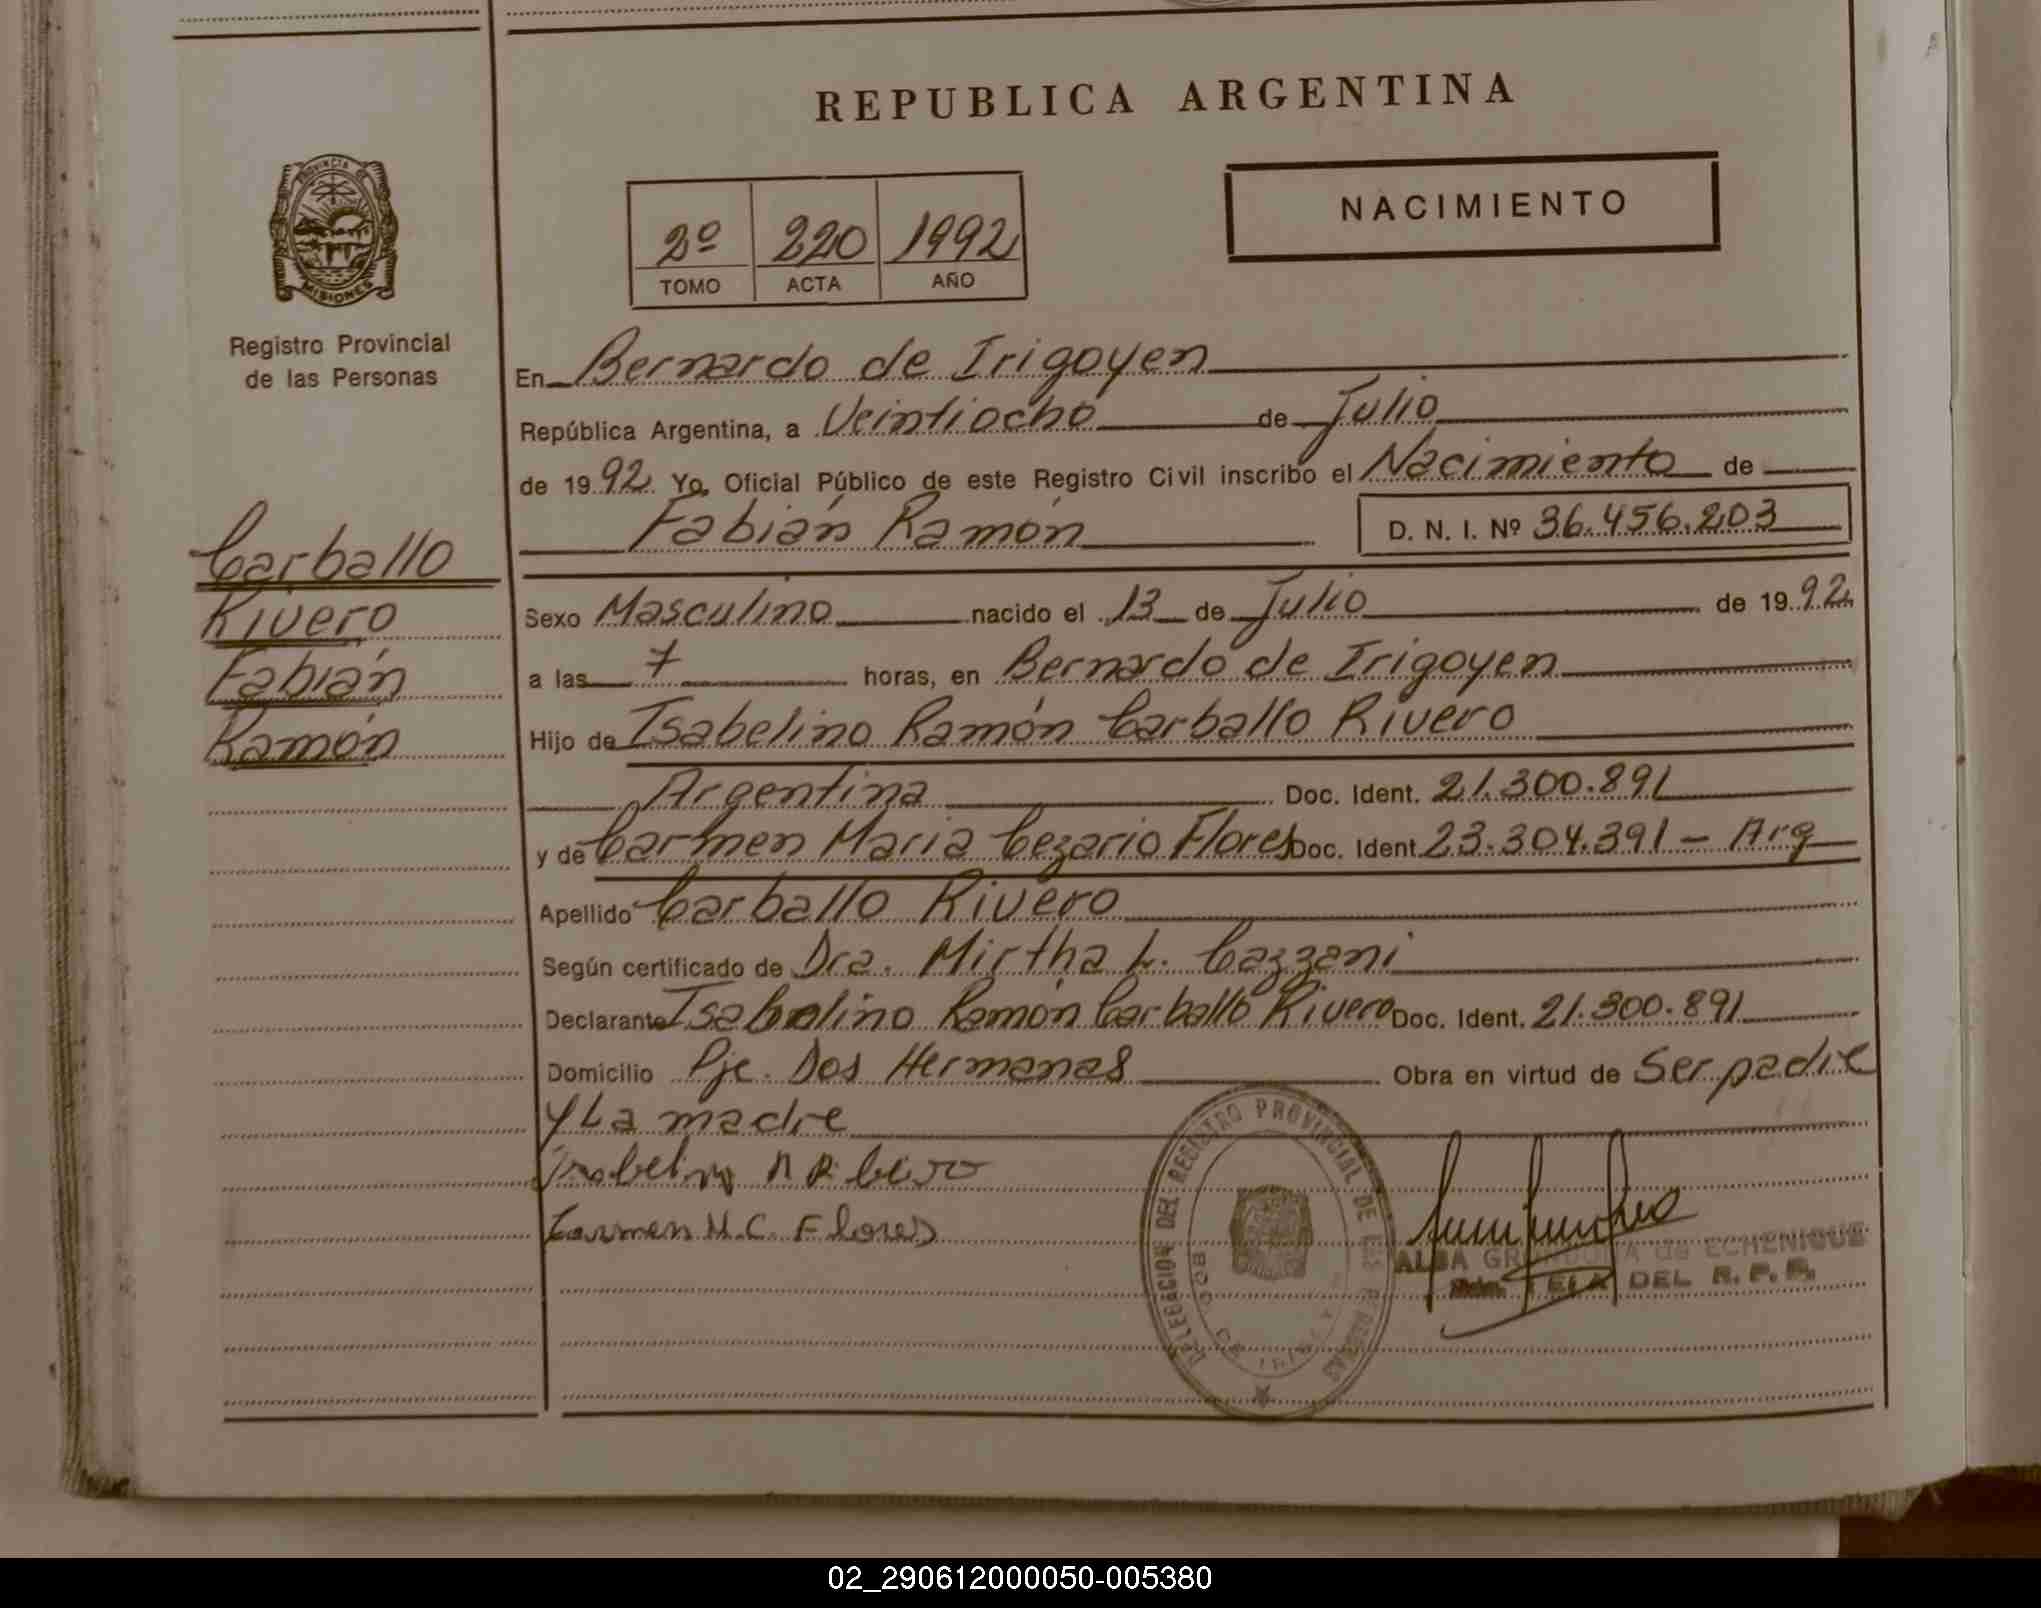 REPUBLICA ARGENTINA
PROVINCIA DE
MISIONES
Registro Provincial
de las Personas
NACIMIENTO
2º 220 1992
TOMO ACTA AÑO
Carballo
Rivero
Fabián
Ramón
En Bernardo de Irigoyen
República Argentina, a Veintiocho de Julio
de 1992 Yo, Oficial Público de este Registro Civil inscribo el Nacimiento de
Fabián Ramón D. N. I. Nº 36.456.203
Sexo Masculino nacido el 13 de Julio de 1992
a las 7 horas, en Bernardo de Irigoyen
Hijo de Isabelino Ramón Carballo Rivero
Argentina Doc. Ident. 21.300.891
y de Carmen Maria Cezario Flores Doc. Ident. 23.304.391 - Arg
Apellido Carballo Rivero
Según certificado de Dra. Mirtha L. Cazzani
Declarante Isabelino Ramón Carballo Rivero Doc. Ident. 21.300.891
Domicilio Pje. Dos Hermanas Obra en virtud de Ser padre
Y La madre
Carmen M.C. Flores
DELEGACION DEL REGISTRO PROVINCIAL DE LAS PERSONAS
ALBA de ECHENIQUE
DEL R. P. P.
02_290612000050-005380